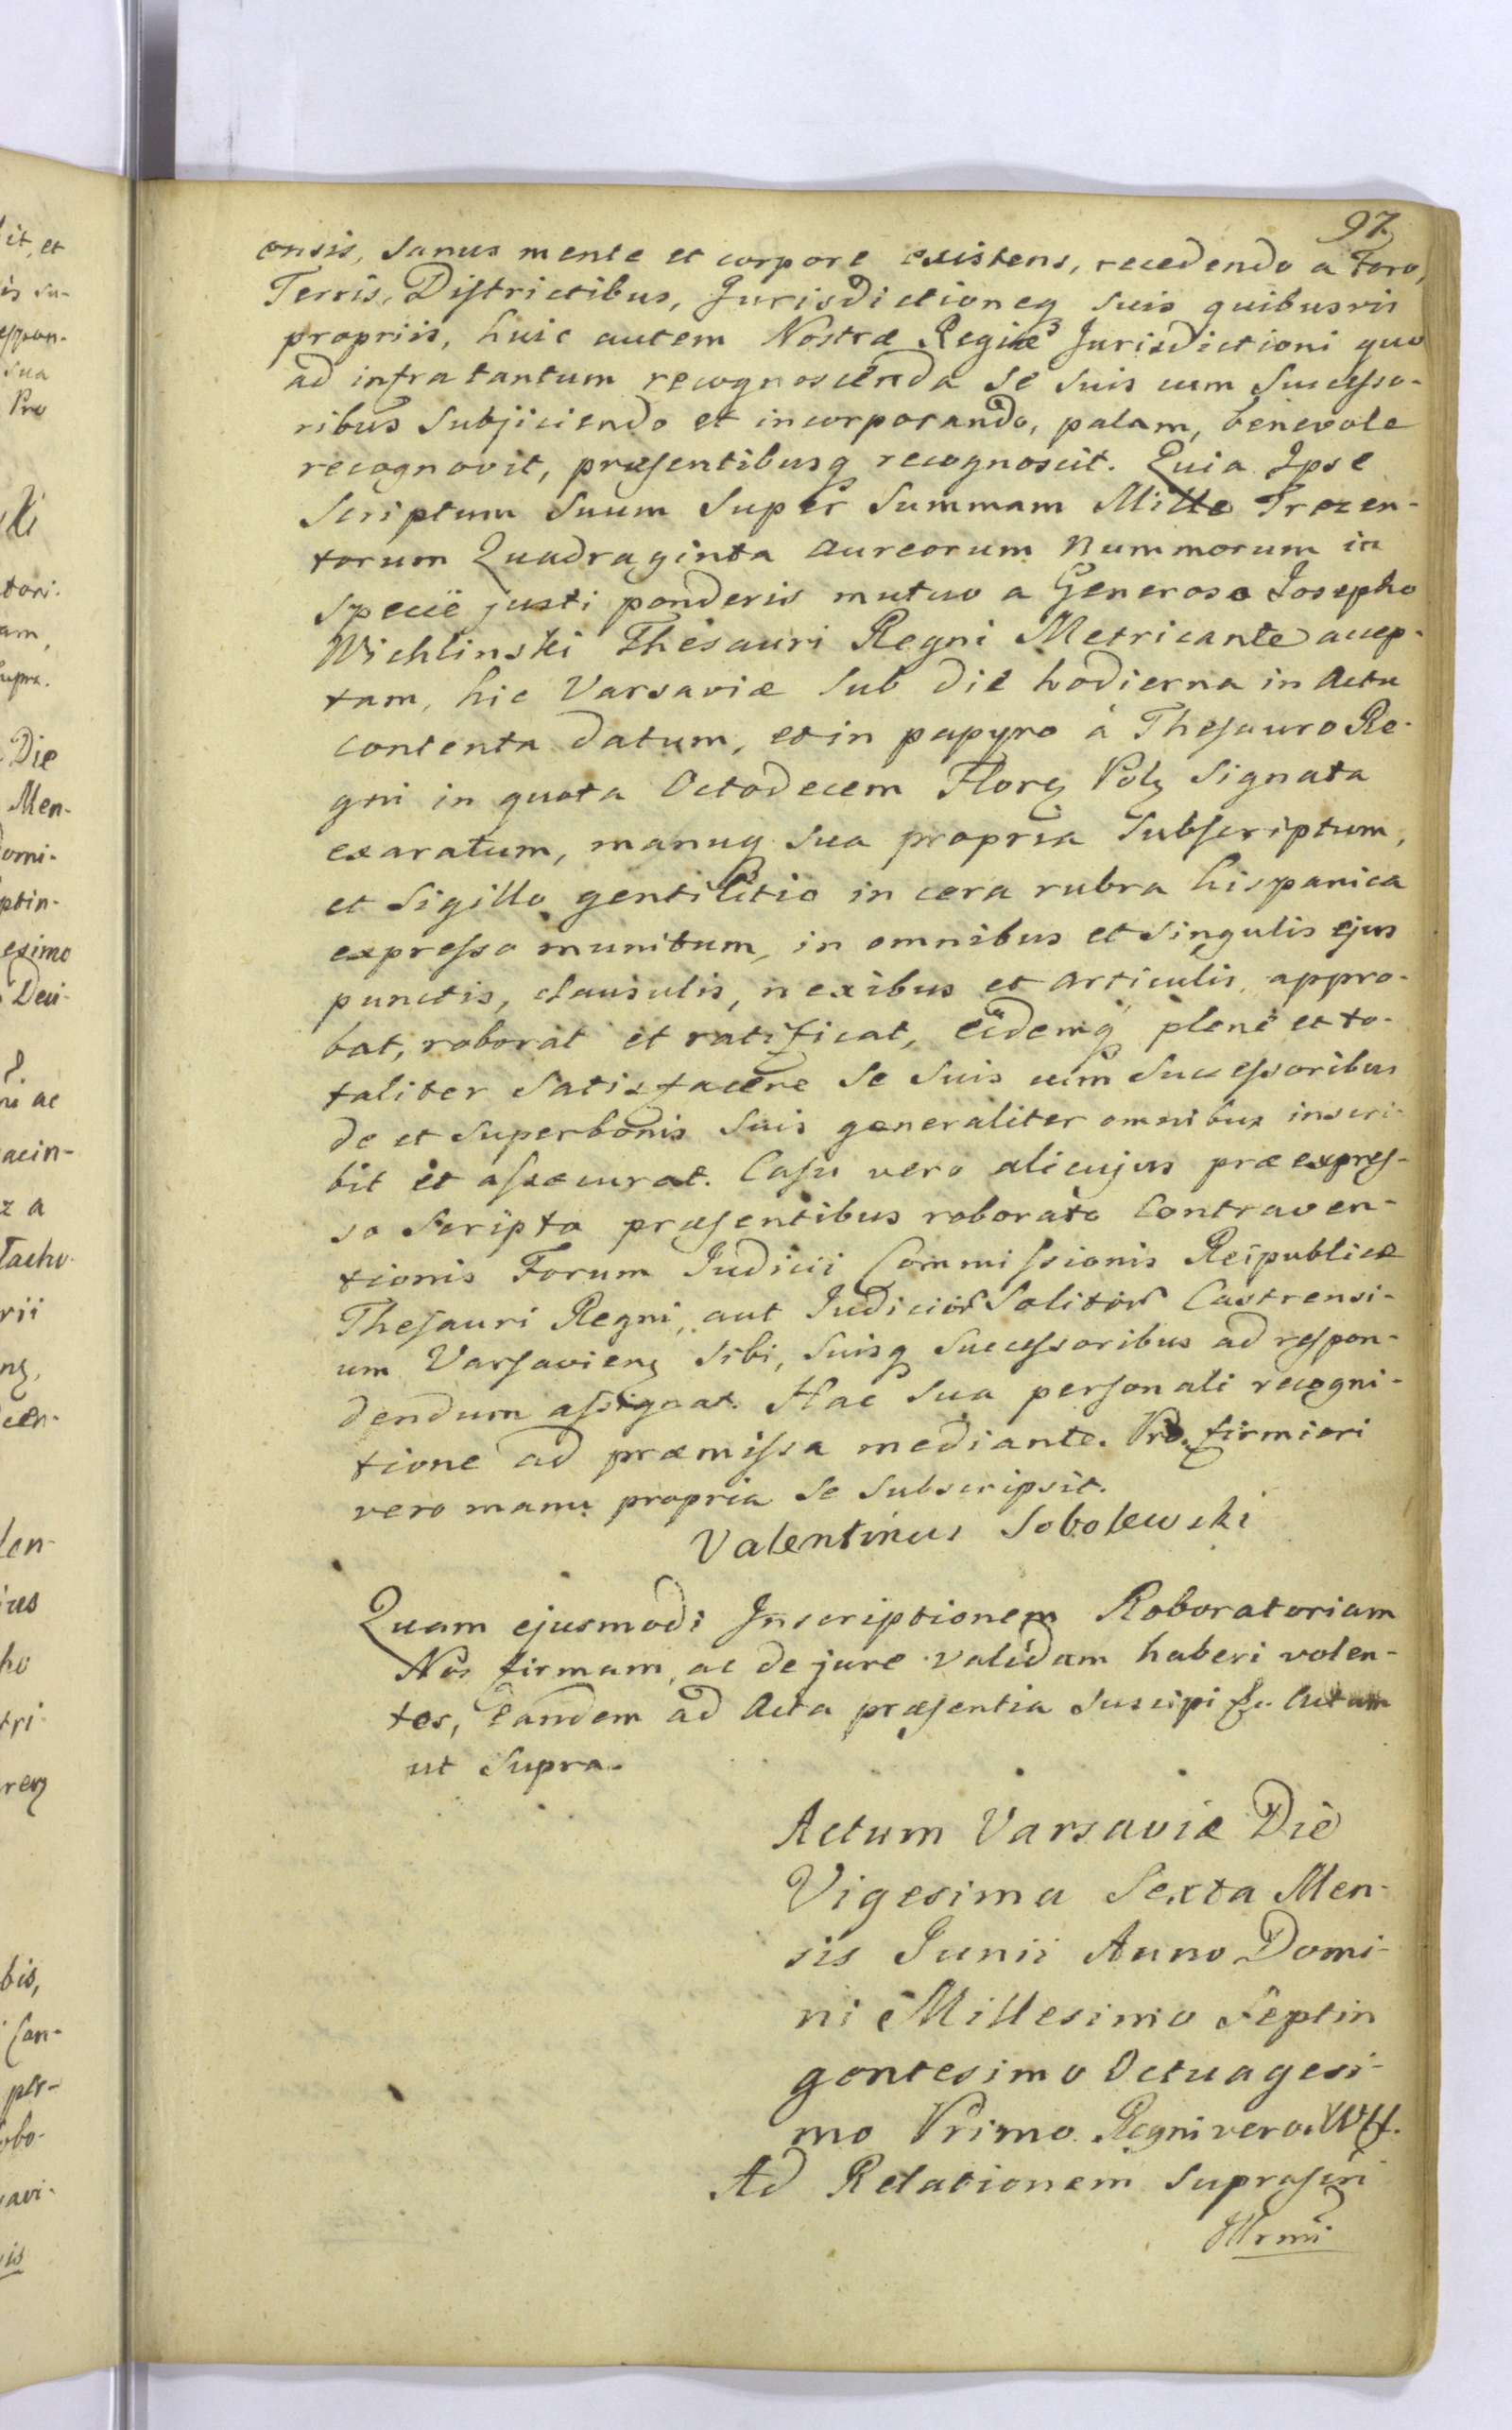 97.
ensis, Sanus mente et corpore existens, recedendo a Foro,
Terris, Districtibus, Jurisdictioneq suis quibusvis
propriis, huic autem Nostræ Regiæ Jurisdictioni quo
ad infra tantum recognoscenda se suis cum Successo-
ribus Subjiciendo et incorporando, palam, benevole
recognovit, præsentibusq recognoscit. Quia Ipse
Scriptum Suum Super Summam Mille Trecen-
torum Quadraginta Aureorum Nummorum in
Specie justi ponderis mutuo a Generoso Josepho
Wichlinski Thesauri Regni Metricante accep-
tam, hic Varsaviæ Sub die hodierna in Actu
contenta datum, et in papyro à Thesauro Re-
gni in quota Octodecem Flor Pol Signata
exaratum, manuq sua propria Subscriptum,
et Sigillo gentilitio in cera rubra hispanica
expresso munitum, in omnibus et Singulis ejus
punctis, clausulis, nexibus et Articulis, appro-
bat, roborat et ratificat, eidemq plene et to-
taliter Satisfacere Se Suis cum Successoribus
de et Super bonis Suis generaliter omnibus inscri-
bit et assecurat. Casu vero alicujus præexpres-
so Scripto præsentibus roborato Contraven-
tionis Forum Judicii Commissionis Reipublicæ
Thesauri Regni, aut Judicior Solitor Castrensi-
um Varsavien Sibi, Suisq Successoribus ad respon-
dendum assignat. Hac Sua personali recogni-
tione ad præmissa mediante. Pro firmiori
vero manu propria Se Subscripsit.
Valentinus Sobolewski
Quam ejusmodi Inscriptionem Roboratoriam
Nos firmam, ac de jure validam haberi volen-
tes, Eandem ad Acta præsentia Suscipi
ut Supra.
Actum Varsaviæ Die
Vigesima Sexta Men-
sis Junii Anno Domi-
ni Millesimo Septin
gentesimo Octuagesi-
mo Primo. Regni vero
Ad Relationem Suprascri